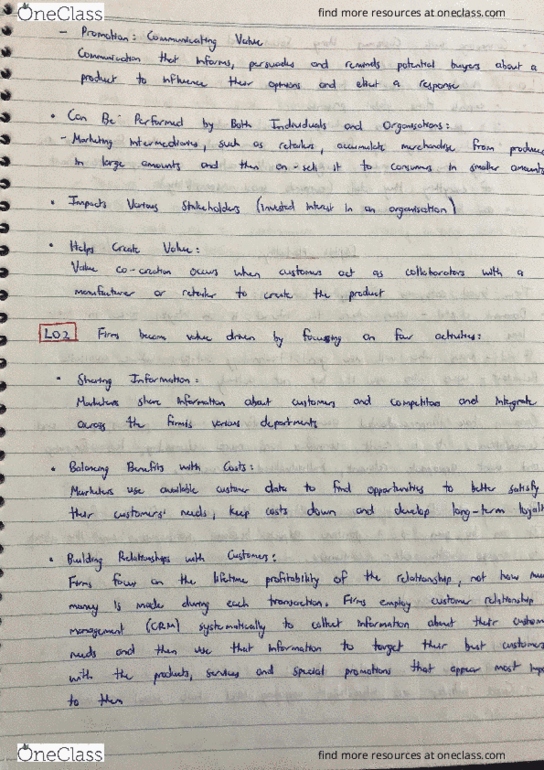 OneClass find more resources at oneclass.com
- Promotion: Communicating Value
Communication that informs, persuades and reminds potential buyers about a
product to influence their opinions and elicit a response
• Can Be Performed by Both Individuals and Organisations:
- Marketing Intermediaries, such as retailers, accumulate merchandise from produce
in large amounts and then on-sell it to consumers in smaller amounts
• Impacts Various Stakeholders (invested interest in an organisation)
• Helps Create Value:
Value co-creation occurs when customers act as collaborators with a
manufacturer or retailer to create the product
LO2 Firms become value driven by focusing on four activities:
• Sharing Information:
Marketers share information about customers and competitors and integrate
across the firm's various departments
• Balancing Benefits with Costs:
Marketers use available customer data to find opportunities to better satisfy
their customers' needs, keep costs down and develop long-term loyalt
• Building Relationships with Customers:
Firms focus on the lifetime profitability of the relationship, not how muc
money is made during each transaction. Firms employ customer relationship
management (CRM) systematically to collect information about their custom
needs and then use that information to target their best customers
with the products, services and special promotions that appear most
to them
OneClass find more resources at oneclass.com